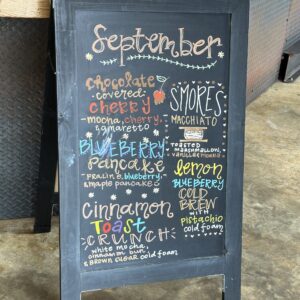 September
chocolate
covered
CHERRY
-mocha, cherry,
& amaretto
BLUEBERRY
Pancake
PRALINE, blueberry,
& maple pancake
Cinnamon
TOAST
CRUNCH
white mocha,
cinnamon bun,
& BROWN SUGAR cold foam
S'MORES
MACCHIATO
TOASTED
MARSHMALLOW,
vanilla & mocha
lemon
BLUEBERRY
COLD
BREW
WITH
PISTACHIO
cold foam